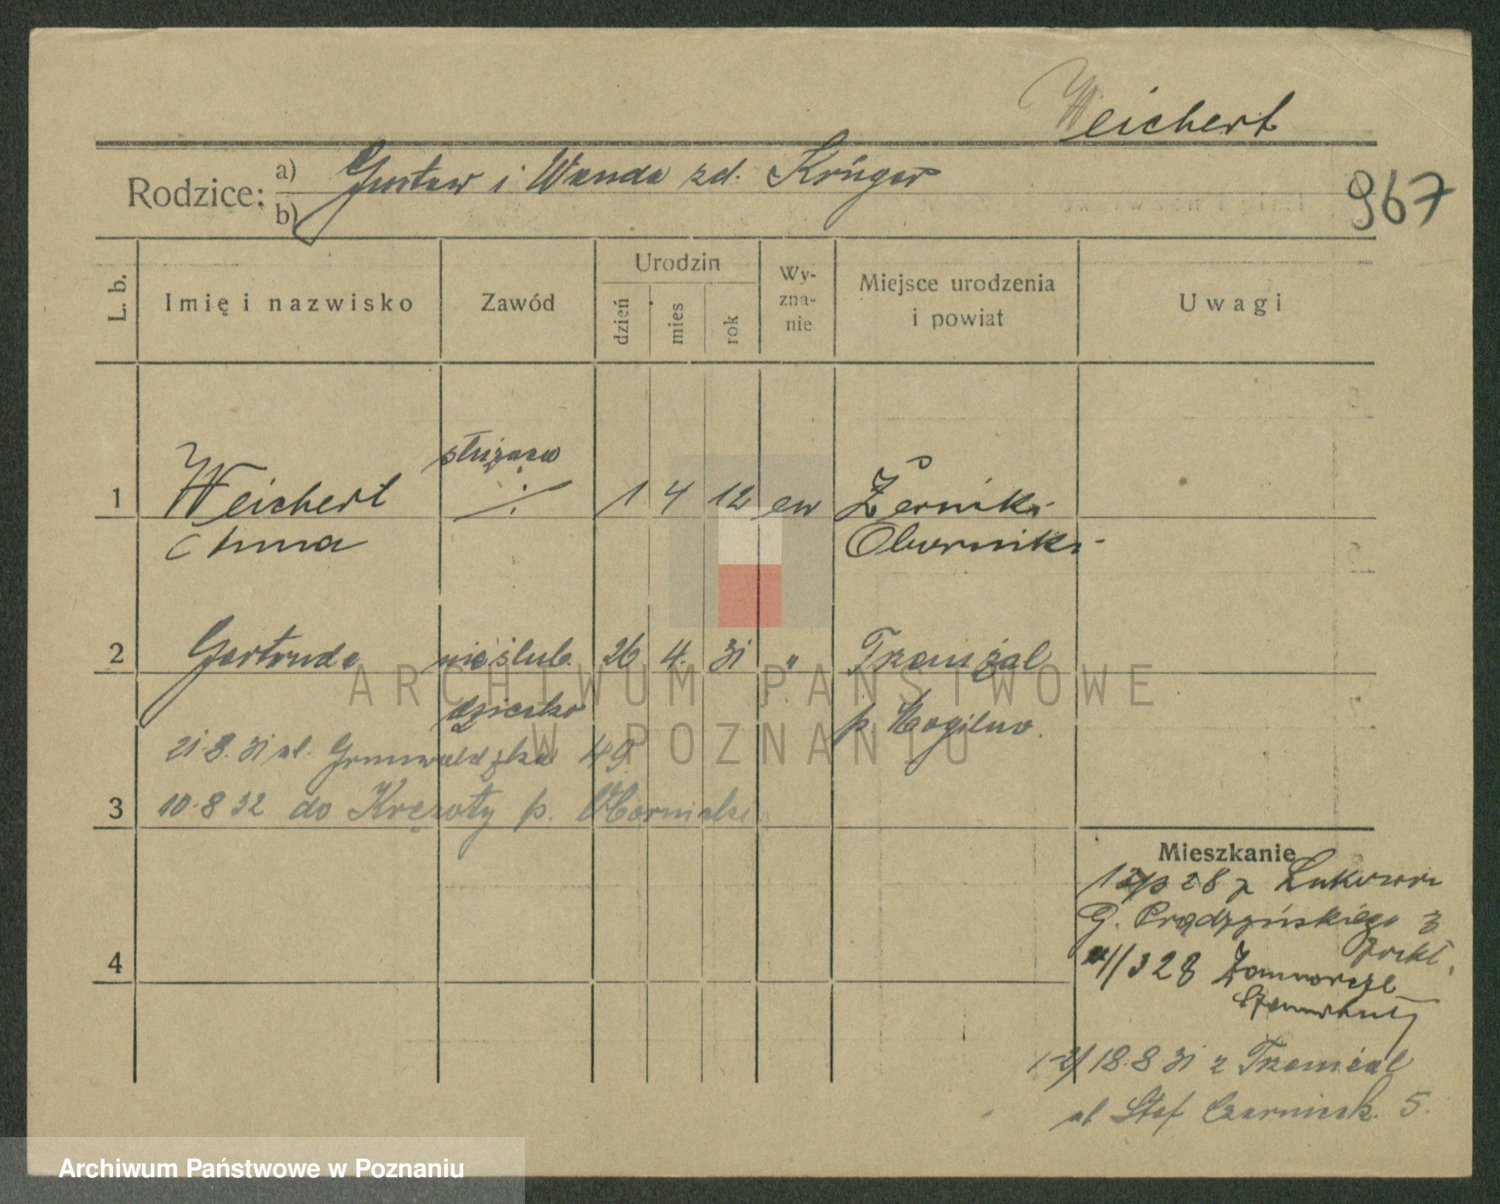 Weichert
Rodzice: a) Gustaw i Wanda zd. Krüger
b)
967
L. b.
Imię i nazwisko
Zawód
Urodzin
dzień
mies
rok
Wy-
zna-
nie
Miejsce urodzenia
i powiat
Uwagi
służąca
1 Weichert ./. 1 4 12 ew Żerniki
Anna Oborniki
2 Gertruda nieślub. 26 4. 31 " Trzemżal
dziecko p. Mogilno.
21.8.31 ul. Grunwaldzka 49
3 10.8.32 do Krężoły p. Oborniki
Mieszkanie
28 z Łukowa
G. Prądzyńskiego 3
4 328
1-2/ 18.8.31 z Trzemżal
ul. Stef. Czarnieck. 5.
ARCHIWUM PAŃSTWOWE
W POZNANIU
Archiwum Państwowe w Poznaniu